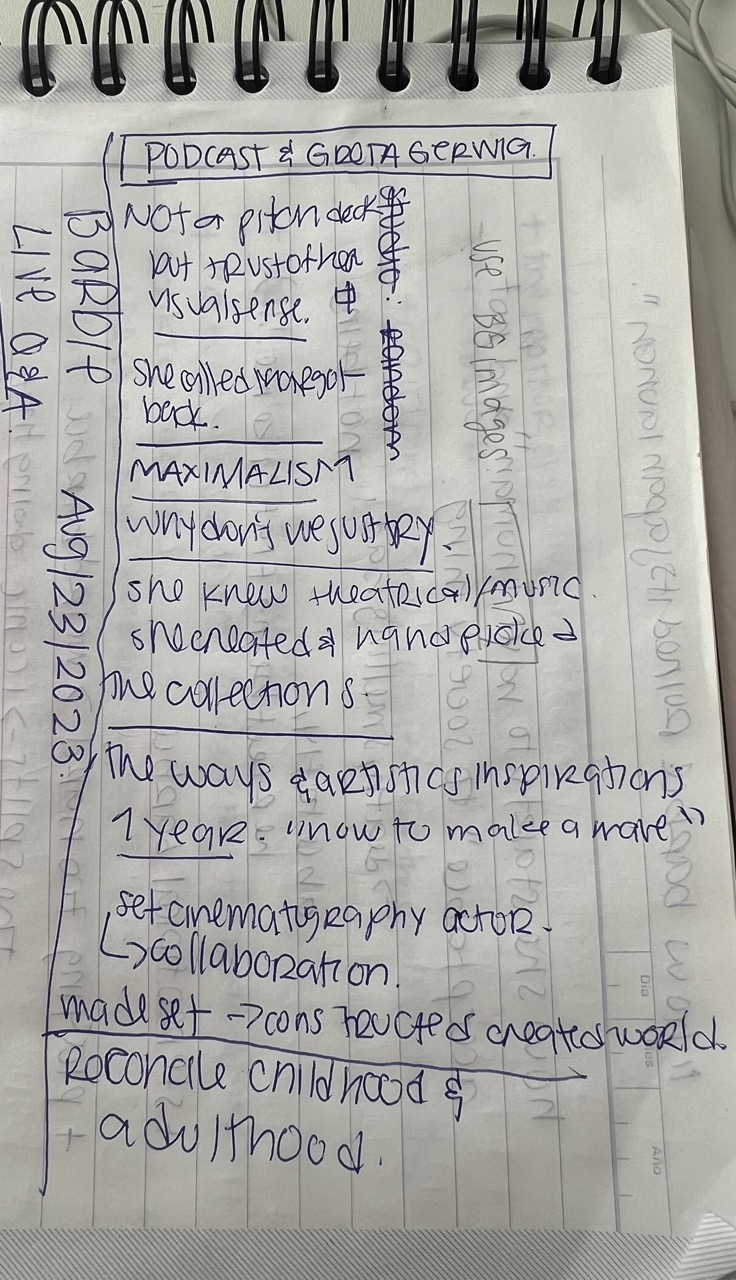 PODCAST & GRETA GERWIG.
NOT a pitch deck
but trust other
visual sense.
she called
back.
MAXIMALISM
Why don't we just TRY.
she knew theatrical/music.
she created & hand picked
the collections.
the ways & artistics inspirations
1 year. "how to make a wave"
set cinematography actor.
↳collaboration.
made set → constructed created world.
Reconcile childhood &
adulthood.
LIVE Q&A.
Aug/23/2023.
use BG images: